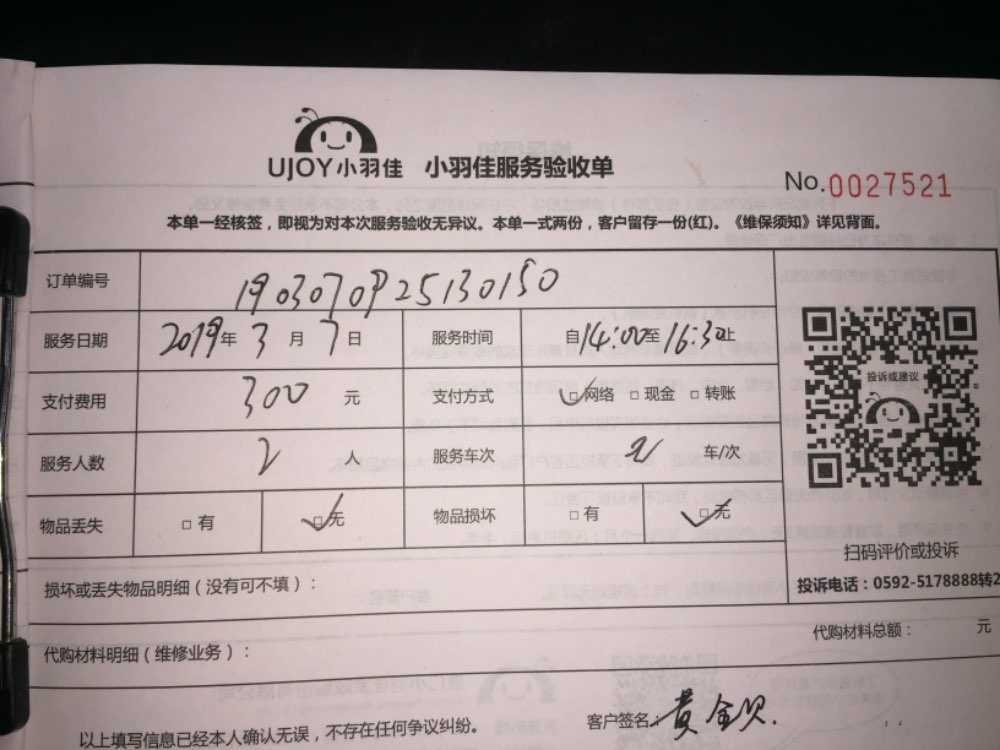 UJOY小羽佳 小羽佳服务验收单
No.0027521
本单一经核签，即视为对本次服务验收无异议。本单一式两份，客户留存一份(红)。《维保须知》详见背面。
订单编号 1903070925130150
服务日期 2019年 3 月 7 日 服务时间 自14:00至16:30止
支付费用 300 元 支付方式 □网络 □现金 □转账
服务人数 2 人 服务车次 车/次
物品丢失 □有 □无 物品损坏 □有 □无
投诉或建议
扫码评价或投诉
投诉电话：0592-5178888转2
损坏或丢失物品明细（没有可不填）：
代购材料明细（维修业务）： 代购材料总额： 元
以上填写信息已经本人确认无误，不存在任何争议纠纷。 客户签名：黄金